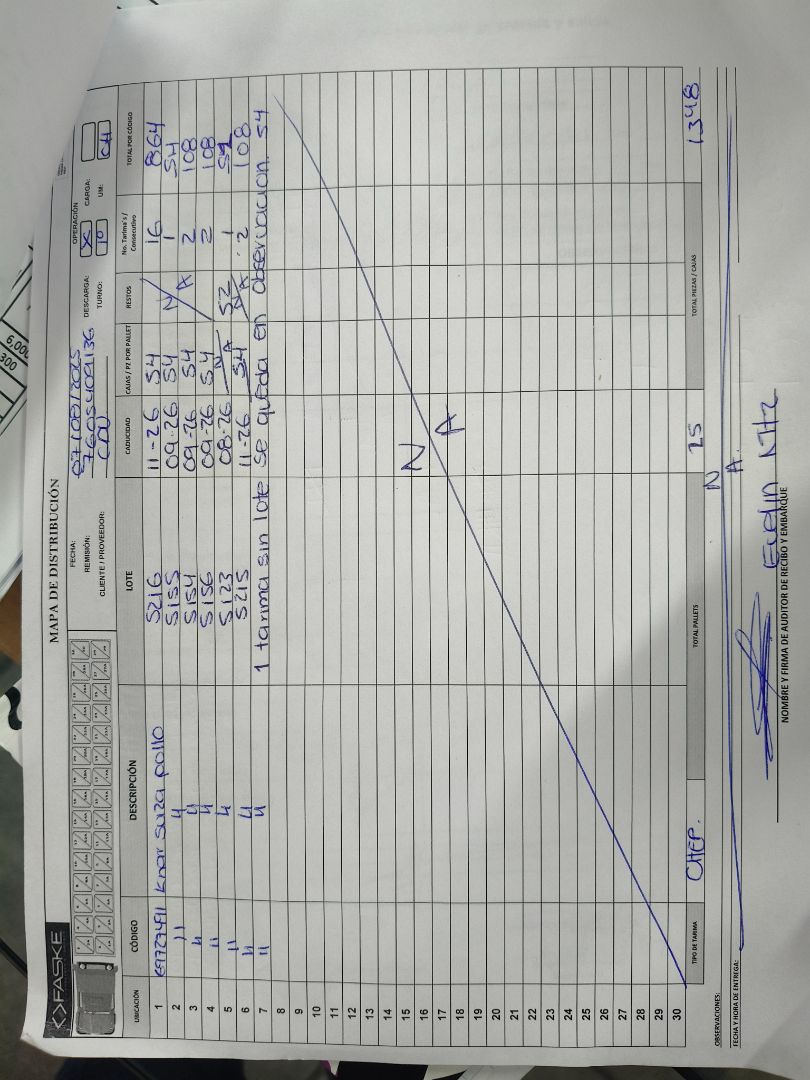 FASKE
MAPA DE DISTRIBUCIÓN
FECHA: 07/08/2025
REMISIÓN: 7605409136
CLIENTE / PROVEEDOR: CDU
OPERACIÓN
DESCARGA: X CARGA:
TURNO: 1° UM: CH
UBICACIÓN CÓDIGO DESCRIPCIÓN LOTE CADUCIDAD CAJAS / PZ POR PALLET RESTOS No. Tarima´s / Consecutivo TOTAL POR CÓDIGO
1 69727491 Knor suiza pollo 5216 11-26 54 16 864
2 11 4 5155 09-26 54 N 1 54
3 4 4 5154 09-26 54 A 2 108
4 11 4 5156 09-26 54 2 108
5 11 4 5123 08-26 N/A 52 1 52
6 4 4 5215 11-26 54 N/A 2 108
7 11 4 1 tarima sin lote se queda en observacion. 54
8
9
10
11
12
13
14
15 N
16
17 A
18
19
20
21
22
23
24
25
26
27
28
29
30
TIPO DE TARIMA CHEP. TOTAL PALLETS 25 TOTAL PIEZAS / CAJAS 1348
OBSERVACIONES: N
FECHA Y HORA DE ENTREGA: A.
Evelin Mtz
NOMBRE Y FIRMA DE AUDITOR DE RECIBO Y EMBARQUE
6,00
300